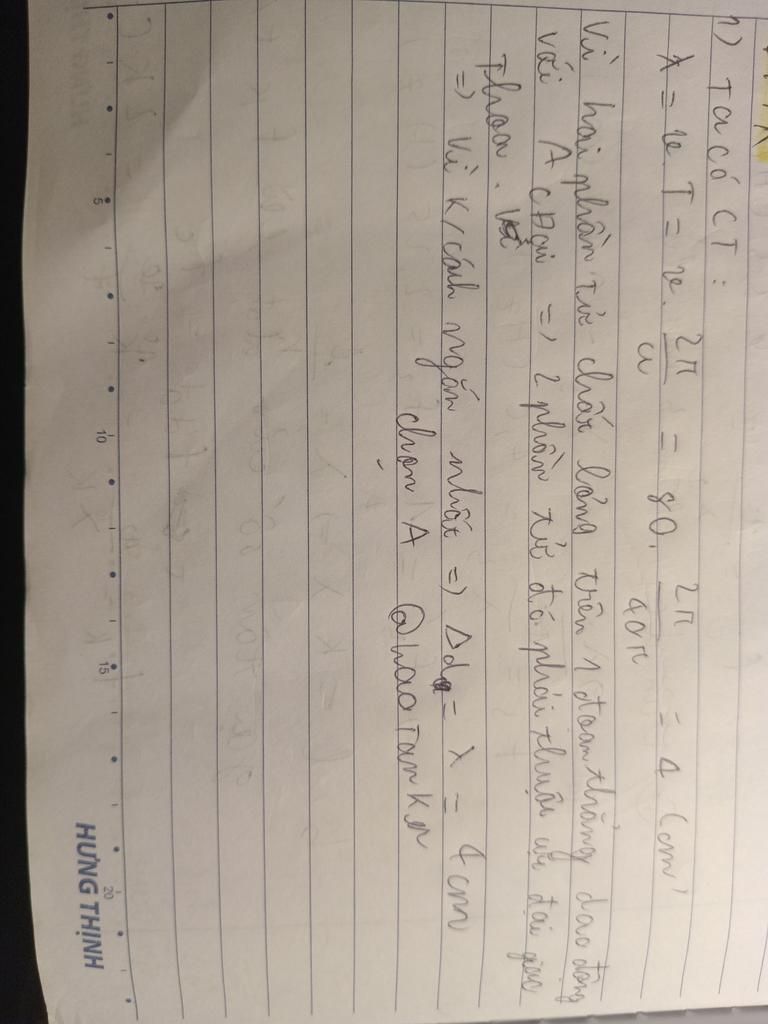 1) Ta có CT:
λ = v. T = v. 2π/ω = 80. 2π/40π = 4 (cm)
Vì hai phần tử chất lỏng trên 1 đoạn thẳng dao động
với A cđại => 2 phần tử đó phải thuộc cực đại giao
Thoa.
=> Vì k/cách ngắn nhất => Δd = λ = 4cm
chọn A @haoTanker
5 10 15 20
HƯNG THỊNH